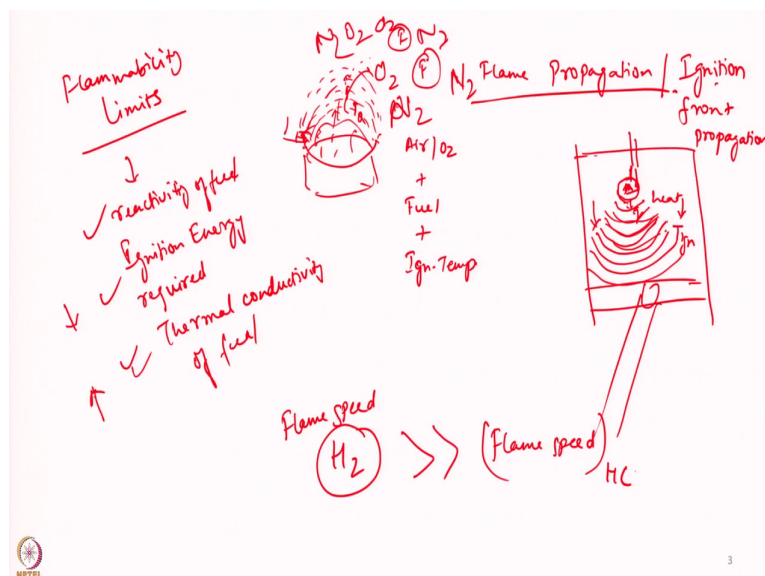 Flammability
Limits
reactivity of fuel
Ignition Energy
required
Thermal conductivity
of fuel
N2 O2 O2 F N2
O2 F N2
N2
Air/O2
+
Fuel
+
Ign. Temp
Flame Propagation / Ignition
front
propagation
heat
Ign
Flame speed
H2 >> (Flame speed) HC
NPTEL
3